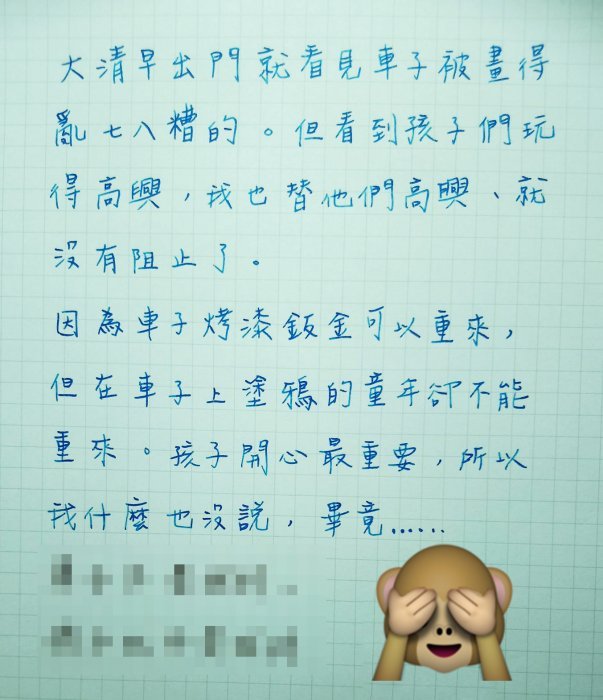 大清早出門就看見車子被畫得
亂七八糟的。但看到孩子們玩
得高興，我也替他們高興、就
沒有阻止了。
因為車子烤漆鈑金可以重來，
但在車子上塗鴉的童年卻不能
重來。孩子開心最重要，所以
我什麼也沒說，畢竟……